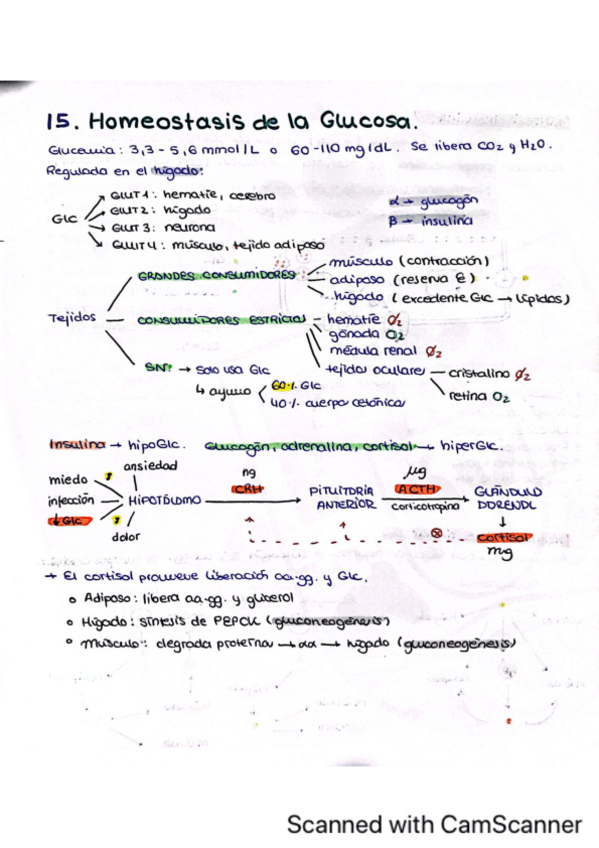 15. Homeostasis de la Glucosa.
Glucemia: 3,3 - 5,6 mmol/L o 60-110 mg/dL. Se libera CO2 y H2O.
Regulada en el hígado:
Glc
GLUT 1: hematíe, cerebro
GLUT 2: hígado
GLUT 3: neurona
GLUT 4: músculo, tejido adiposo
α → glucagón
β → insulina
Tejidos
GRANDES CONSUMIDORES:
músculo (contracción)
adiposo (reserva e)
hígado (excedente Glc → lípidos)
CONSUMIDORES ESTRICTOS
hematíe O2
gónada O2
médula renal O2
tejidos oculares
cristalino O2
retina O2
→ solo usa Glc
↳ ayuno
60% Glc
40% cuerpo cetónica
Insulina → hipoGlc. Glucagón, adrenalina, cortisol → hiperGlc.
miedo
ansiedad
infección
↓Glc
dolor
HIPOTÁLAMO
ng
CRH
PITUITARIA
ANTERIOR
μg
ACTH
corticotropina
GLÁNDULA
ADRENAL
↓
cortisol
mg
→ El cortisol promueve liberación aa.gg. y Glc.
• Adiposo: libera aa.gg. y glicerol
• Hígado: síntesis de PEPCK (gluconeogénesis)
• Músculo: degrada proteína → aa → hígado (gluconeogénesis)
Scanned with CamScanner